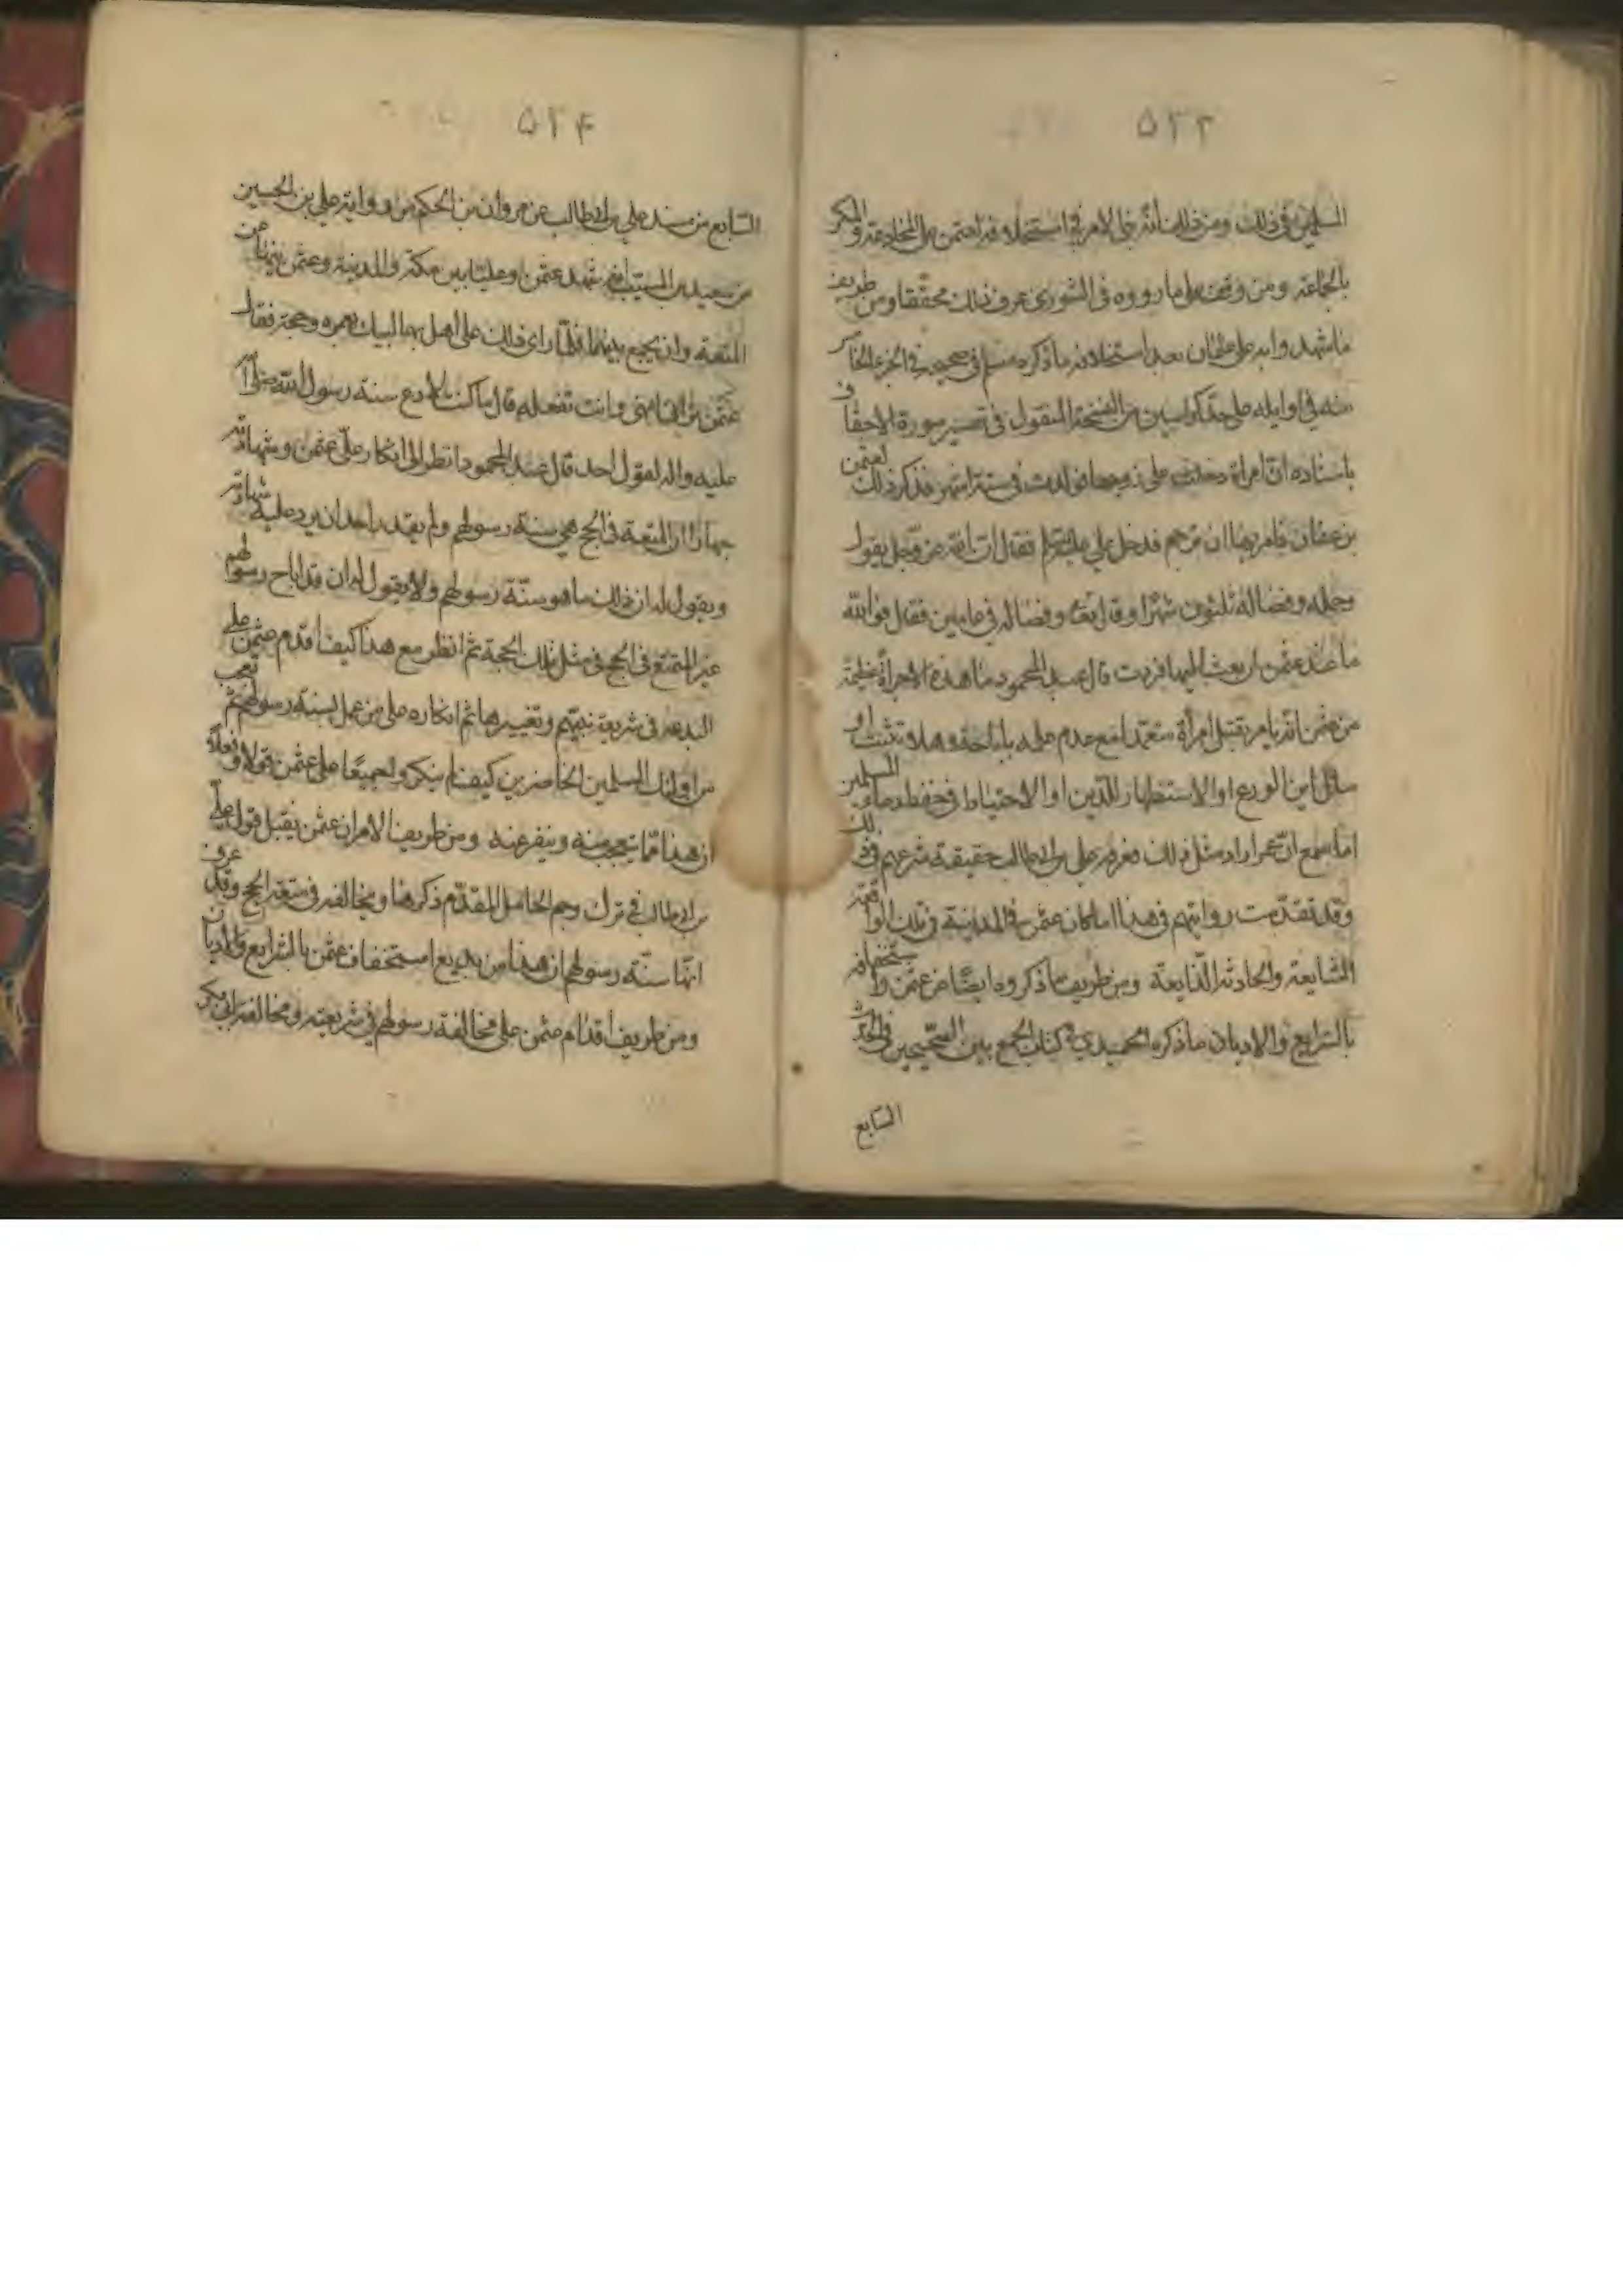 ٥٢٣
المسلمين في ذلك ومن ذلك انه بني الامر في استخلافه لعثمن على المخادعة والمكر
بالجماعة ومن وقف على ما رووه في الشورى عرف ذلك محققا ومن طريف
ما شهدوا به على عثمان بعد استخلافه ما ذكره مسلم في صحيحه في الجزء الخامس
منه في اوايله على حد كراسين من النسخة المنقول في تفسير سورة الاحقاف
باسناده ان امراة دخلت على زوجها فولدت في ستة اشهر فذكر ذلك لعثمن
بن عفان فامر بها ان ترجم فدخل علي عليه السلم فقال ان الله عز وجل يقول
وحمله وفصاله ثلثون شهرا وقال ايضا وفصاله في عامين فقال فوالله
ما عند عثمن ان بعث اليها فردت قال عبد المحمود ما هذه الا جراة عظيمة
من عثمن انه يامر بقتل امرأة متعمدا مع عدم علمه باباحة وهلا تثبت او
سائل اين الورع او الاستظهار للدين او الاحتياط في حفظ دماء المسلمين
اما سمع ان عمر اراد مثل ذلك فعرفه علي بن ابي طالب حقيقة شرعهم في ذلك
وقد تقدمت روايتهم في هذا اما كان عثمن في المدينة في تلك الواقعة
الشايعة والحادثة الذايعة ومن طريف ما ذكروه ايضا من عثمن واستخفافه
بالشرايع والاديان ما ذكره الحميدي في كتاب الجمع بين الصحيحين في الحديث
السابع
٥٢٤
السابع من مسند علي بن ابي طالب عن مروان بن الحكم من رواية علي بن الحسين
من سعيد بن المسيب انه شهد عثمن وعليا بين مكة والمدينة وعثمن ينهى عن
المتعة وان يجمع بينهما فلما راى ذلك على اهل بهما لبيك بعمرة وحجة فقال
عثمن تراني انهى وانت تفعله قال ما كنت لادع سنة رسول الله صلى الله
عليه واله لقول احد قال عبد المحمود انظر الى انكار علي عثمن وشهادته
جهارا ان المتعة في الحج هي سنة رسولهم ولم يقدر احد ان يرد عليه شهادته
ويقول له ان ذلك ما هو سنة رسولهم ولا يقول له ان قد اباح رسولهم
غير التمتع في الحج في مثل تلك الحجة ثم انظر مع هذا كيف اقدم عثمن على
البدعة في شريعة نبيهم وتغييرها ثم انكاره على من عمل بسنة رسولهم ثم تعجب
من اولئك المسلمين الحاضرين كيف لم ينكروا جميعا على عثمن قولا وفعلا
ان هذا مما يتعجب منه وينفر عنه ومن طريف الامر ان عثمن يقبل قول علي
بن ابي طالب في ترك رجم الحامل المقدم ذكرها ويخالفه في متعة الحج وقد عرف
انها سنة رسولهم ان هذا من بديع استخفاف عثمن بالشرايع والاديان
ومن طريف اقدام عثمن على مخالفة رسولهم في شريعته ومخالفة ابي بكر